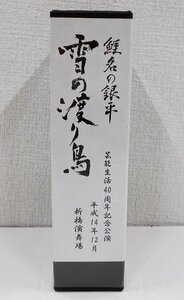 鯉名の銀平
雪の渡り鳥
芸能生活40周年記念公演
平成14年12月
新橋演舞場